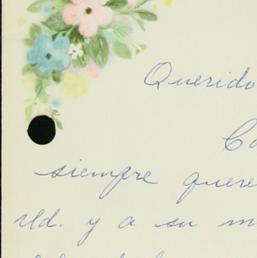 Querido
siempre quere
Ud. y a su m